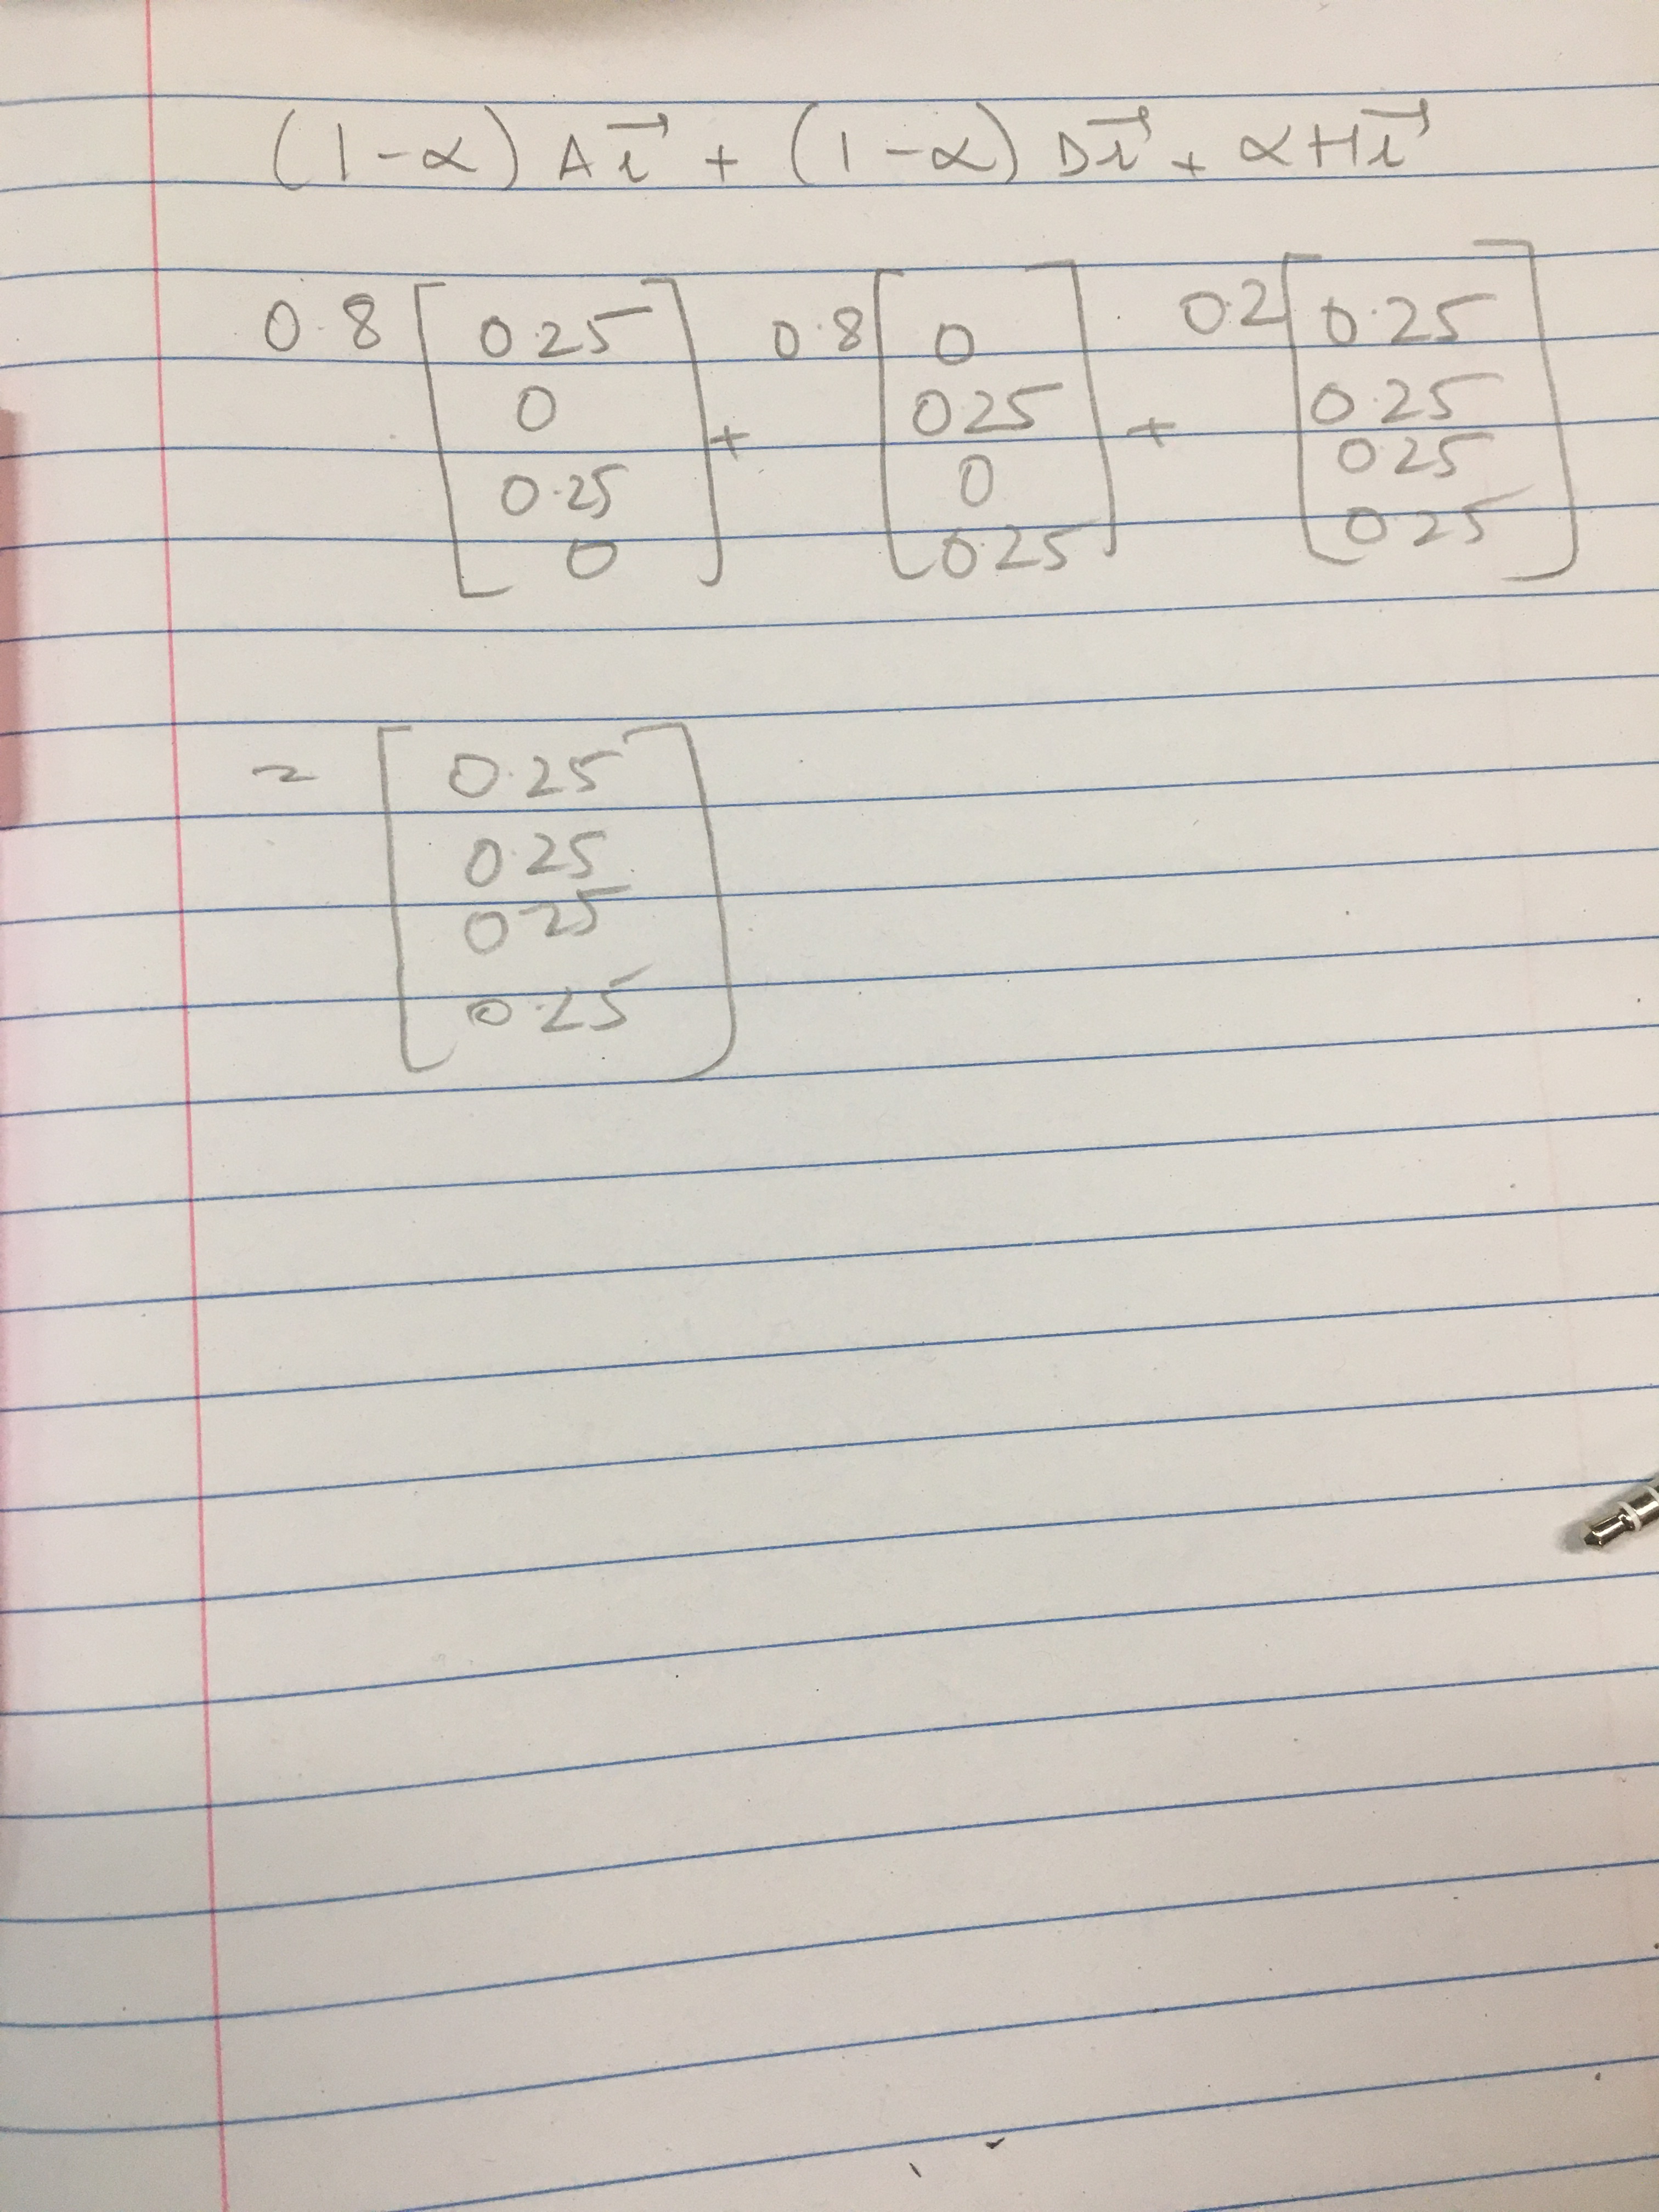 (1-α) Ai⃗ + (1-α) Di⃗ + αHi⃗
0.8 [ 0.25 ] 0.8 [ 0 ] 0.2 [ 0.25 ]
[ 0 ] [ 0.25 ] [ 0.25 ]
+ +
[ 0.25 ] [ 0 ] [ 0.25 ]
[ 0 ] [ 0.25 ] [ 0.25 ]
= [ 0.25 ]
[ 0.25 ]
[ 0.25 ]
[ 0.25 ]